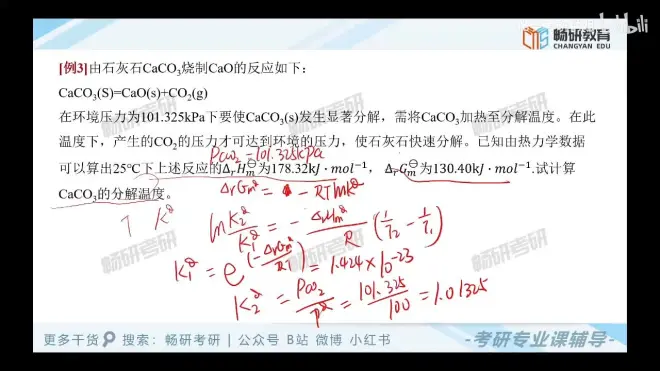 bilibili
畅研教育
CHANGYAN EDU
[例3]由石灰石CaCO₃烧制CaO的反应如下：
CaCO₃(S)=CaO(s)+CO₂(g)
在环境压力为101.325kPa下要使CaCO₃(s)发生显著分解，需将CaCO₃加热至分解温度。在此
温度下，产生的CO₂的压力才可达到环境的压力，使石灰石快速分解。已知由热力学数据
Pco₂=101.325kPa
可以算出25℃下上述反应的ΔᵣHₘ^⊖为178.32kJ·mol⁻¹， ΔᵣGₘ^⊖为130.40kJ·mol⁻¹.试计算
CaCO₃的分解温度。
ΔrGm^θ = - RTlnk^θ
T K^θ
ln K₂^θ/K₁^θ = - ΔrHm^θ/R (1/T₂ - 1/T₁)
K₁^θ = e^(-ΔrGm^θ/RT) = 1.424×10^-23
K₂^θ = Pco₂/P^θ = 101.325/100 = 1.01325
畅研考研 畅研考研 畅研考研
畅研考研 畅研考研 畅研考研
更多干货 搜索：畅研考研 | 公众号 B站 微博 小红书
-考研专业课辅导-